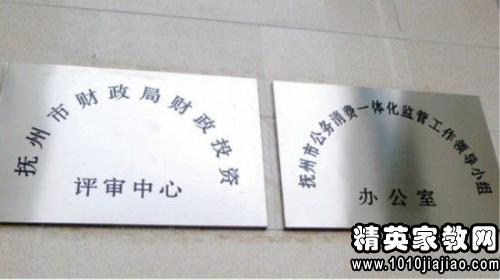 抚州市财政局财政投资
评审中心
抚州市公务消费一体化监管工作领导小组
办公室
精英家教网
www.1010jiajiao.com